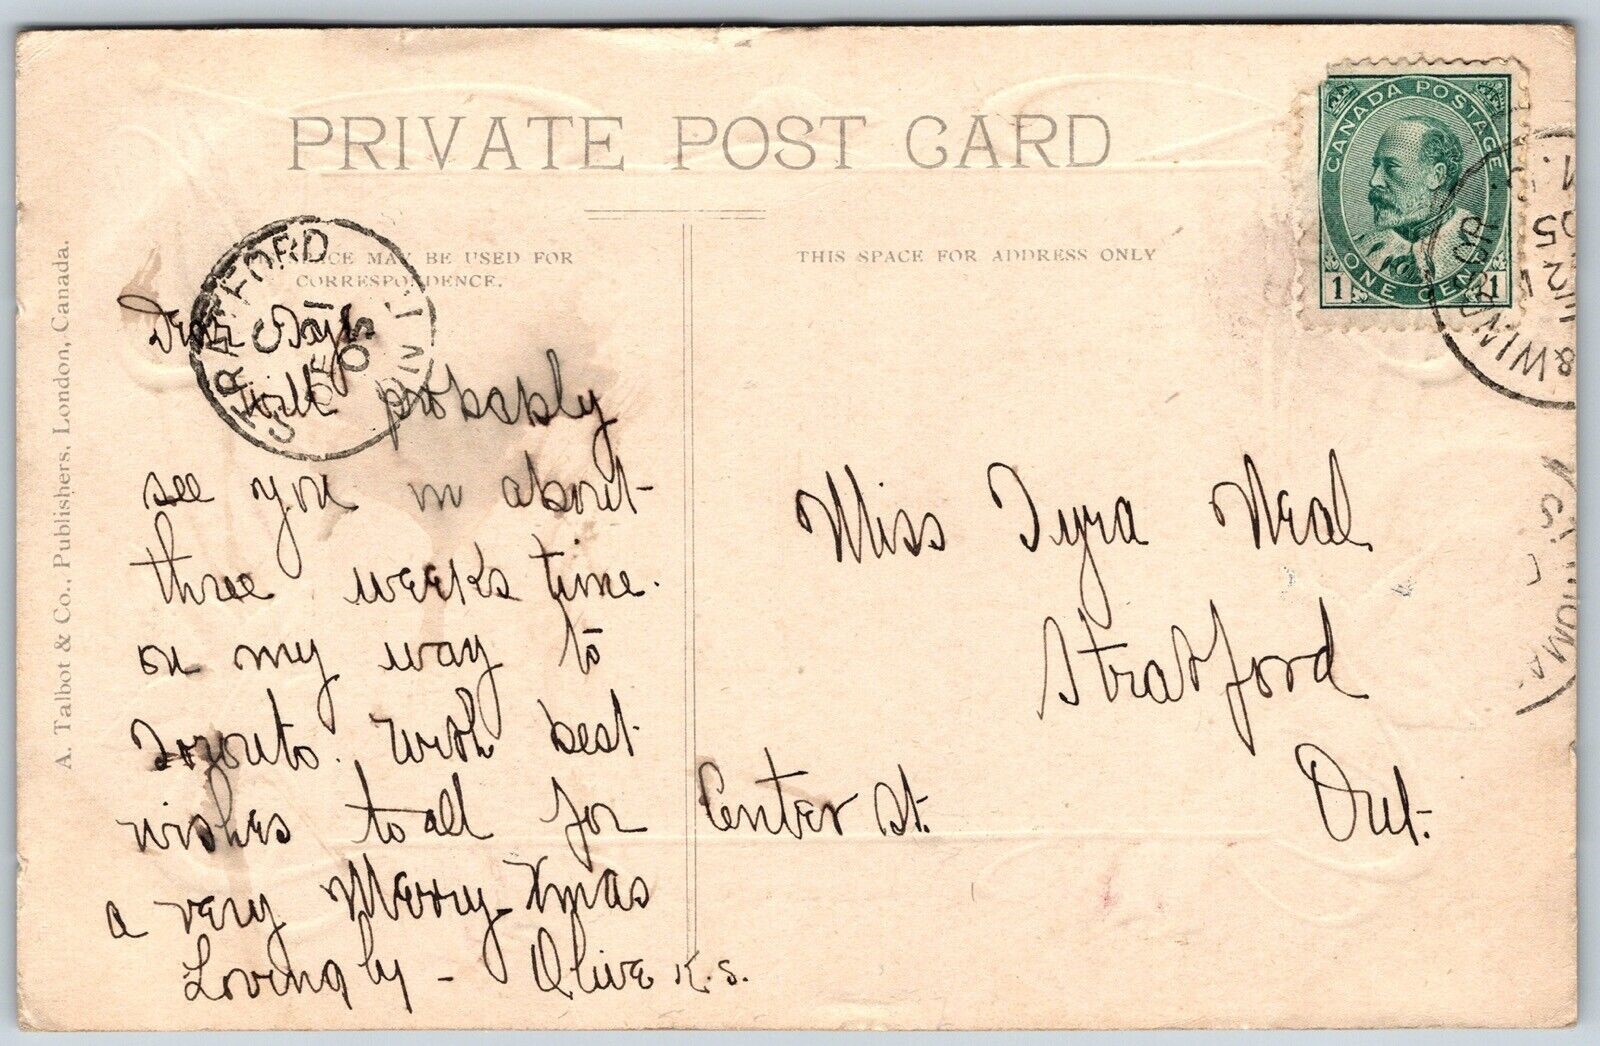 PRIVATE POST CARD
CE MAY BE USED FOR
CORRESPONDENCE.
THIS SPACE FOR ADDRESS ONLY
CANADA POSTAGE
1 ONE CENT 1
STRATFORD
& WINDSOR
A. Talbot & Co., Publishers, London, Canada.
Dear
Will probably
see you in about
three weeks time.
on my way to
Toronto. With best
wishes to all for
a very Merry Xmas
Lovingly - Olive K.S.
Miss Tyra Neal.
Stratford
Center St. Ont.